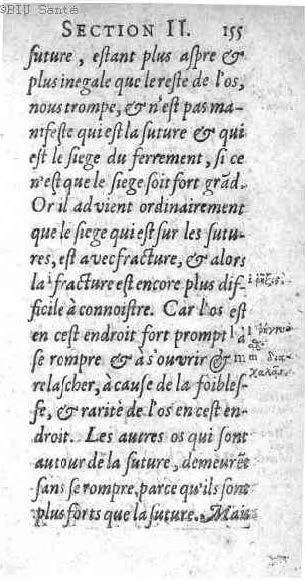 ©BIU Santé
SECTION II. 155
suture, estant plus aspre &
plus inegale que le reste de l'os,
nous trompe, & n'est pas ma-
nifeste qui est la suture & qui
est le siege du ferrement, si ce
n'est que le siege soit fort grãd.
Or il advient ordinairement
que le siege qui est sur les sutu-
res, est avec fracture, & alors
la fracture est encore plus dif-
ficile à connoistre. Car l'os est
en cest endroit fort prompt à
se rompre & à s'ouvrir &
relascher, à cause de la foibles-
se, & raritè de l'os en cest en-
droit. Les autres os qui sont
autour de la suture, demeurẽt
sans se rompre, parce qu'ils sont
plus forts que la suture. Mais